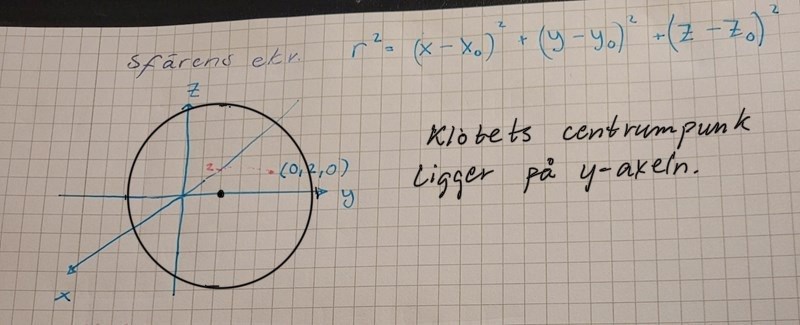 Sfärens ekv. r² = (x - x₀)² + (y - y₀)² + (z - z₀)²
z
Klotets centrumpunk
ligger på y-axeln.
2 (0,2,0)
y
x